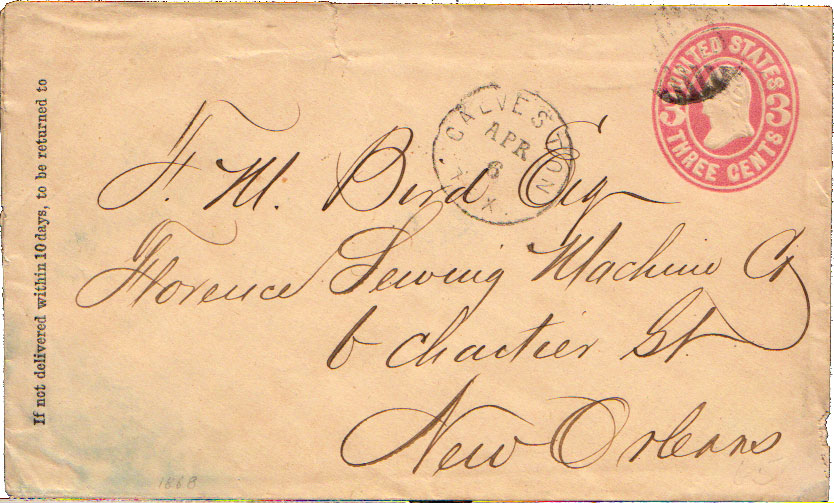 If not delivered within 10 days, to be returned to
UNITED STATES
3 3
THREE CENTS
GALVESTON
APR
6
TEX.
F. M. Bird Esq
Florence Sewing Machine Co
6 Chartier St.
New Orleans
1868